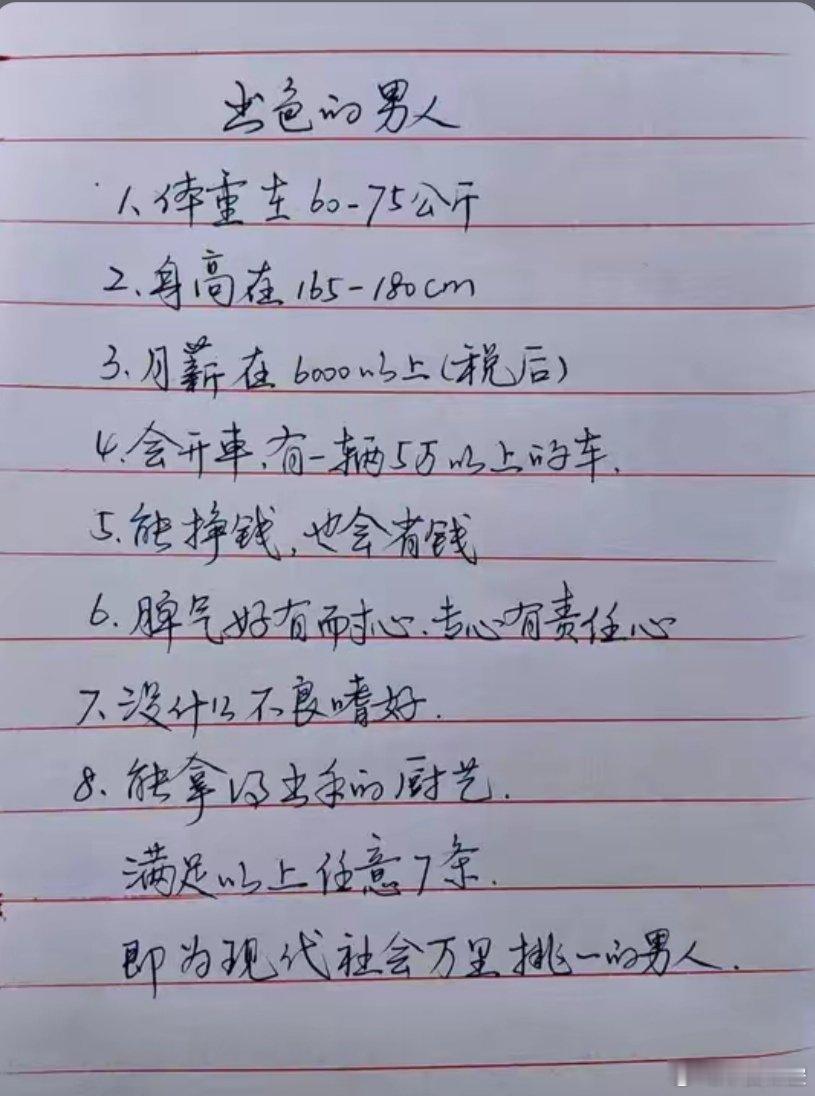 出色的男人
1、体重在60-75公斤
2、身高在165-180cm
3、月薪在6000以上(税后)
4、会开车、有一辆5万以上的车.
5、能挣钱,也会省钱
6、脾气好有耐心、专心有责任心
7、没什么不良嗜好.
8、能拿得出手的厨艺.
满足以上任意7条.
即为现代社会万里挑一的男人.